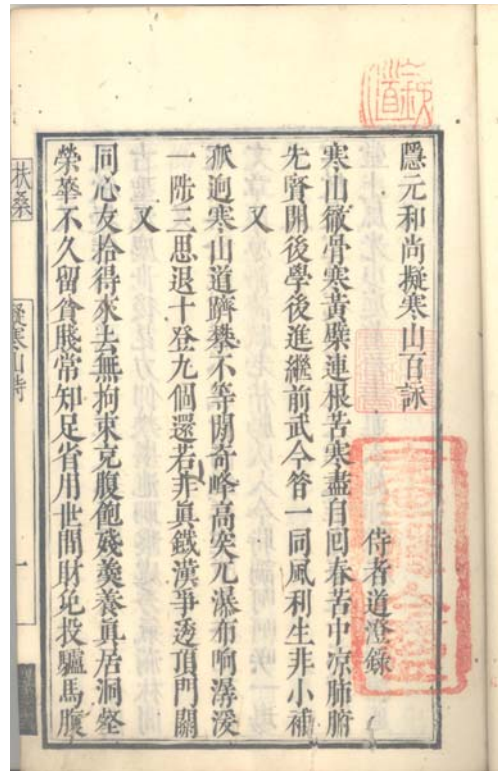 隱元和尚擬寒山百詠
侍者道澄錄
寒山徹骨寒黃檗連根苦寒盡自回春苦中凉肺腑
先賢開後學後進繼前武今昝一同風利生非小補
又
孤逈寒山道躋攀不等閑奇峰高突兀瀑布响潺湲
一陟三思退十登九個還若非眞鐵漢爭透頂門關
又
同心友拾得來去無拘束充腹飽殘羮養眞居洞壑
榮華不久留貧賤常知足省用世間財免投驢馬腹
扶桑
擬寒山詩
一